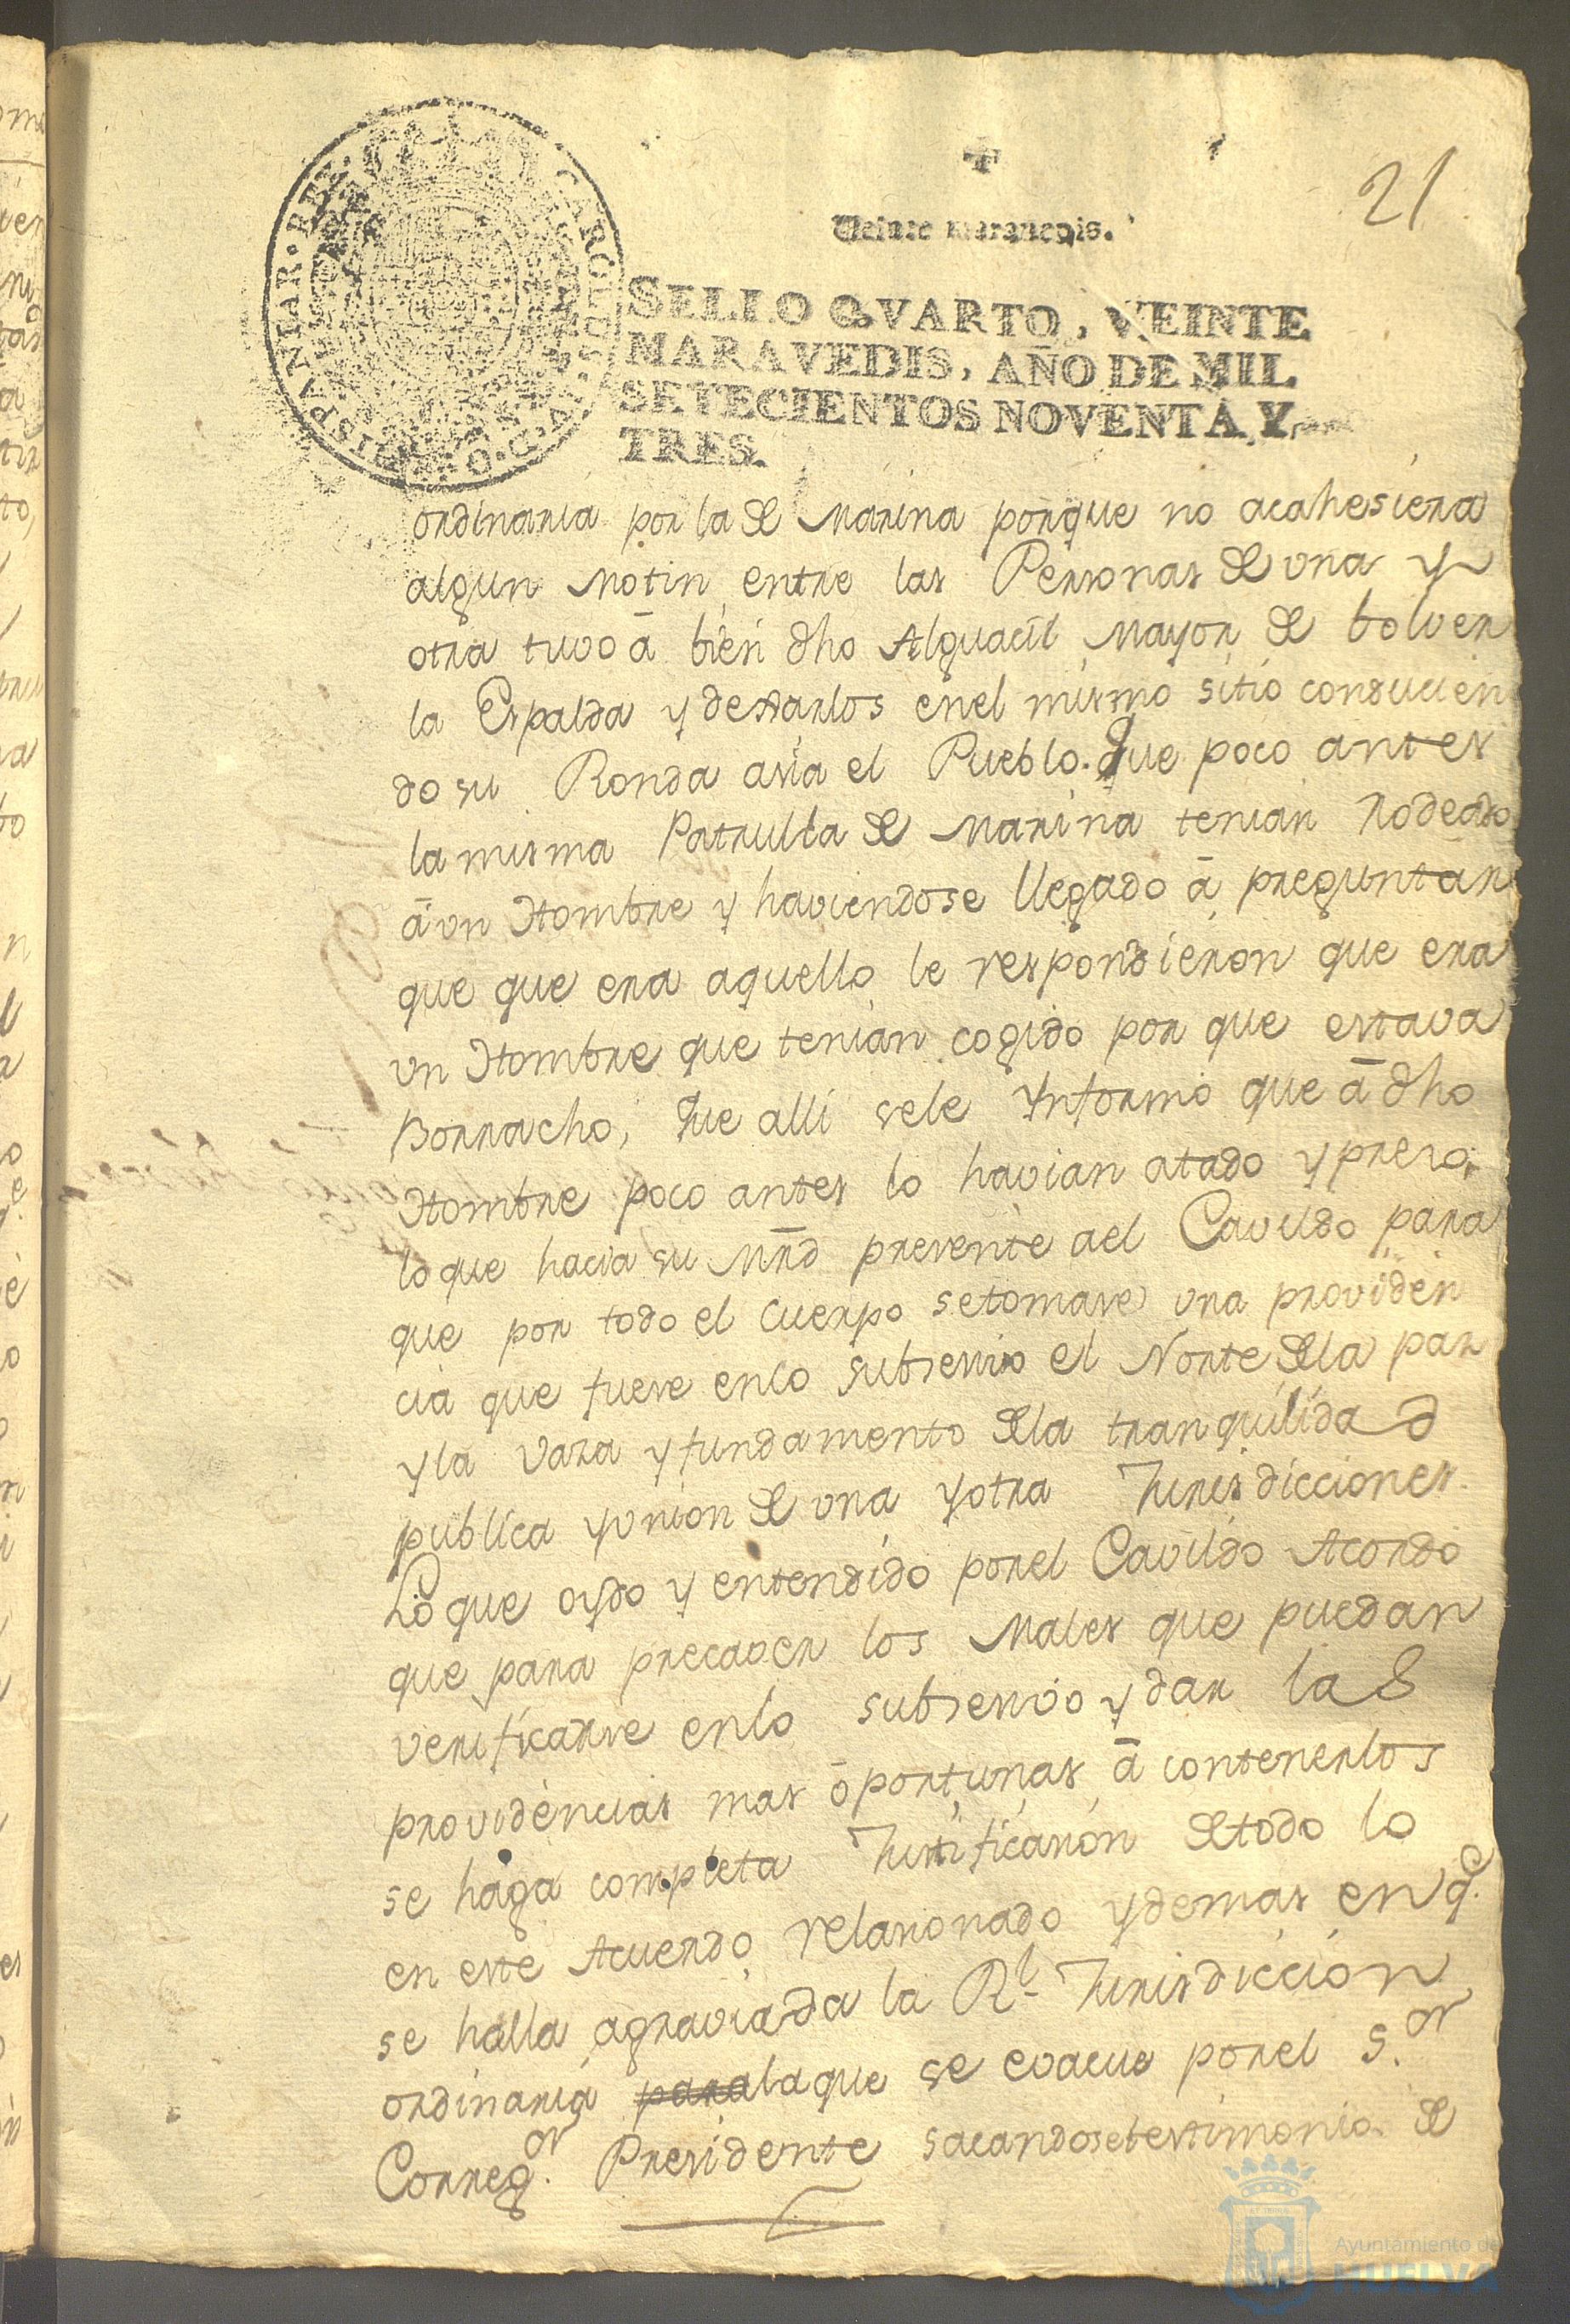 21
Veinte maravedis.
CAROLUS
HISPANIAR. REX.
SELLO QVARTO, VEINTE
MARAVEDIS, AÑO DE MIL
SETECIENTOS NOVENTA Y
TRES.
ordinaria por la de Marina porque no acahesiera
algun Motin entre las Personas de una y
otra tuvo â bien dho Alguacil Mayor de bolver
la Espalda y dexarlos enel mismo sitio conducien
do su Ronda asia el Pueblo. Que poco antes
la misma Patrulla de Marina tenian Rodeado
â un Hombre y haviendose llegado â preguntar
que que era aquello le respondieron que era
un Hombre que tenian cogido por que estava
Borracho, Que alli sele Ynformo que â dho
Hombre poco antes lo havian atado y preso.
lo que hacia su Mrd presente ael Cavildo para
que por todo el Cuerpo setomase una providen
cia que fuese enlo subsesivo el Norte dela paz
y la vaza y fundamento dela tranquilidad
publica y union de una y otra Jurisdicciones.
Lo que oydo y entendido porel Cavildo Acordó
que para precaver los Males que puedan
verificarse enlo subsesivo y dar las
providencias mas ôportunas â contenerlos
se haga completa Justificazion detodo lo
en este Acuerdo relazionado y demas en q.e
se halla agraviada la R.l Jurisdiccion
ordinaria para la que se evacue porel S.or
Correg.or Presidente sacandose testimonio de
Ayuntamiento de
HUELVA